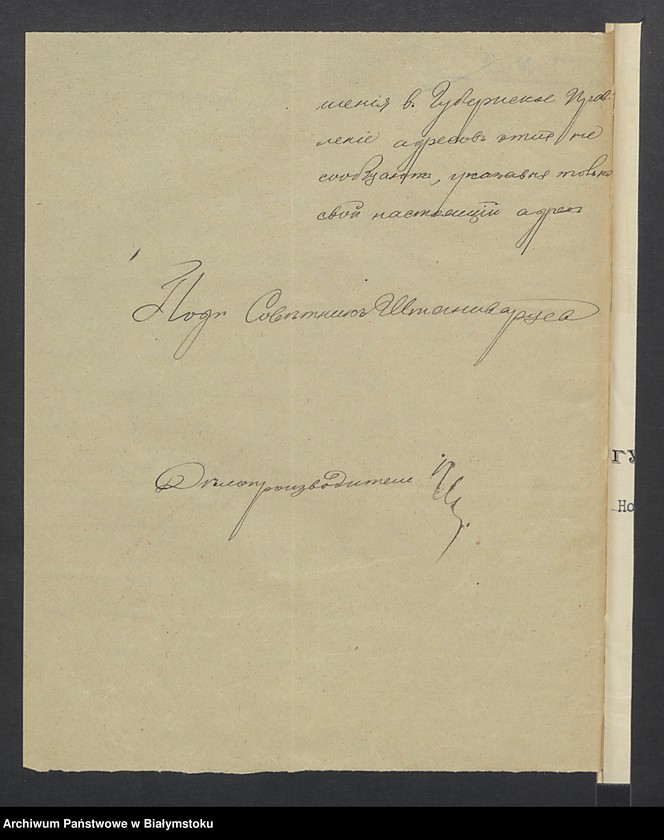 шенія въ Губернское Прав-
леніе адресовъ этихъ не
сообщаютъ, указавъ только
свой настоящій адресъ
Подп Совѣтникъ
Дѣлопроизводитель
ГУ
Но
Archiwum Państwowe w Białymstoku